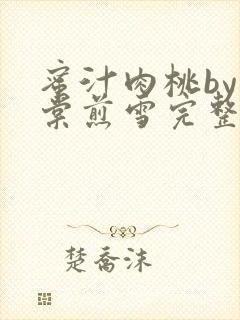 蜜汁肉桃by
棠煎雪完整
楚乔沫